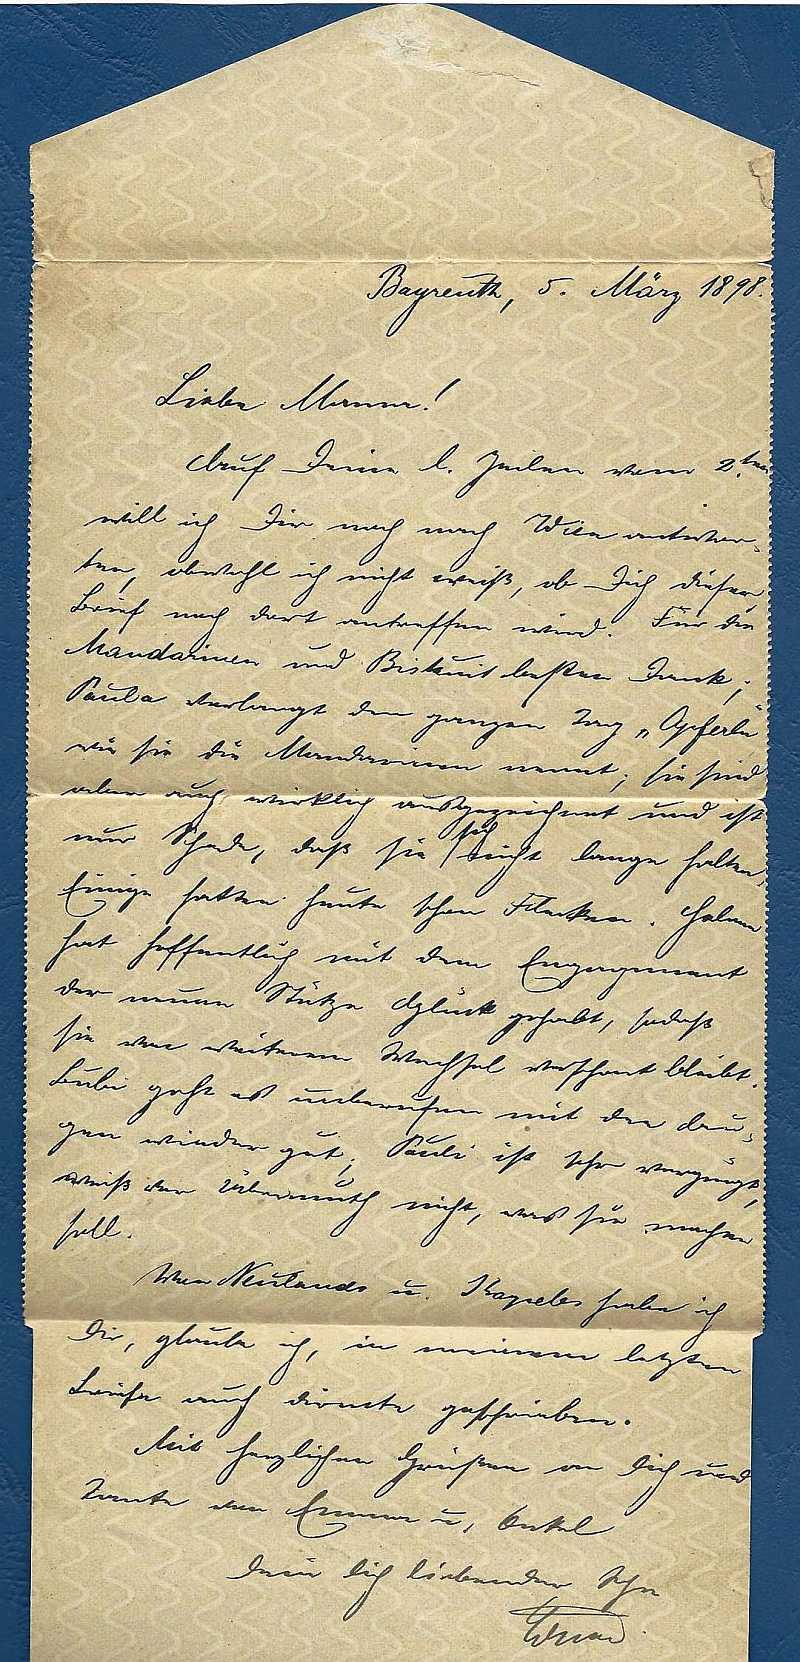 Bayreuth, 5. März 1898.
Liebe Mama!
Auf Deine l. Zeilen vom 2ten
will ich Dir noch nach Wien antwor-
ten, obwohl ich nicht weiß, ob Dich dieser
Brief noch dort antreffen wird. Für die
Mandarinen und Biskuit besten Dank;
Paula verlangt den ganzen Tag „Opferln“
wie sie die Mandarinen nennt; sie sind
aber auch wirklich ausgezeichnet und ist
nur Schade, daß sie sich nicht lange halten.
Einige hatten heute schon Flecken.
hat hoffentlich mit dem Engagement
der neuen Stütze Glück gehabt, sodaß
sie von weiterem Wechsel verschont bleibt.
Bubi geht es unberufen mit den Au-
gen wieder gut; Pauli ist sehr vergnügt,
weiß vor Übermuth nicht, was sie machen
soll.
Von Neulands u. habe ich
Dir, glaube ich, in meinem letzten
Briefe auch geschrieben.
Mit herzlichen Grüßen an Dich und
Tante von Emma u. Onkel
Dein Dich liebender Sohn